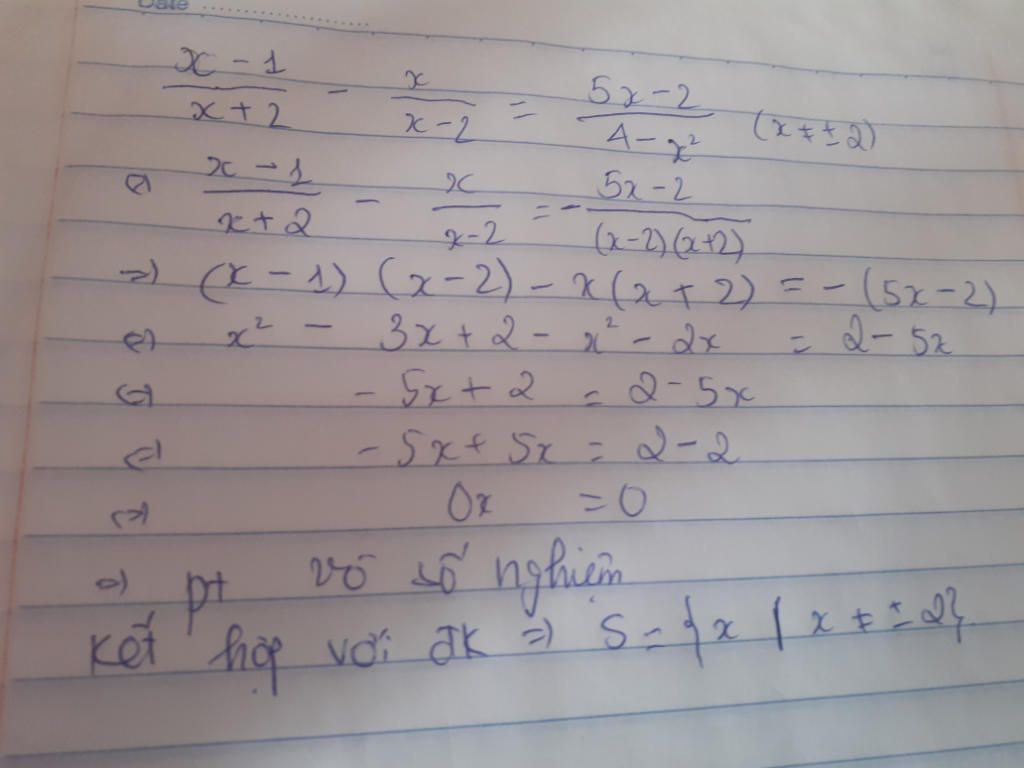 Date
x - 1 / x + 2 - x / x - 2 = 5x - 2 / 4 - x² (x ≠ ± 2)
⇔ x - 1 / x + 2 - x / x - 2 = - 5x - 2 / (x - 2)(x + 2)
⇒ (x - 1) (x - 2) - x (x + 2) = - (5x - 2)
⇔ x² - 3x + 2 - x² - 2x = 2 - 5x
⇔ - 5x + 2 = 2 - 5x
⇔ - 5x + 5x = 2 - 2
⇔ 0x = 0
⇒ pt vô số nghiệm
Kết hợp với đk ⇒ S = {x | x ≠ ± 2}